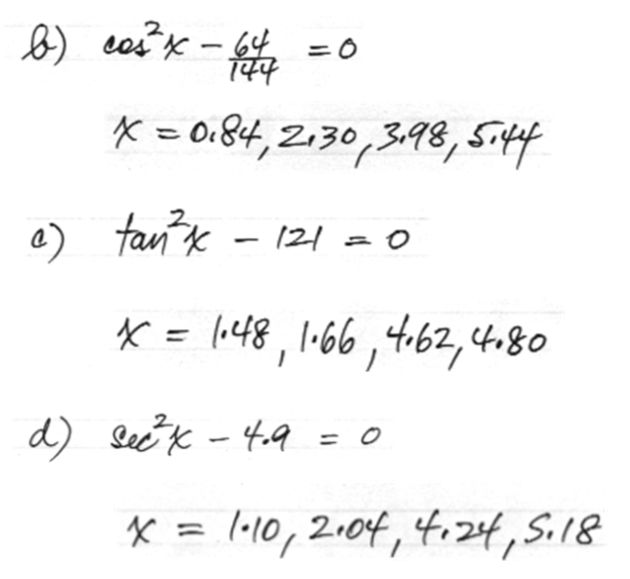 b) cos²x - 64/144 = 0
x = 0.84, 2.30, 3.98, 5.44
c) tan²x - 121 = 0
x = 1.48, 1.66, 4.62, 4.80
d) sec²x - 4.9 = 0
x = 1.10, 2.04, 4.24, 5.18